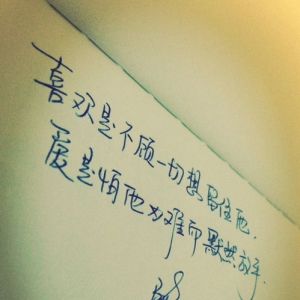 喜欢是不顾一切想留住他，
爱是怕他为难而默然放手。